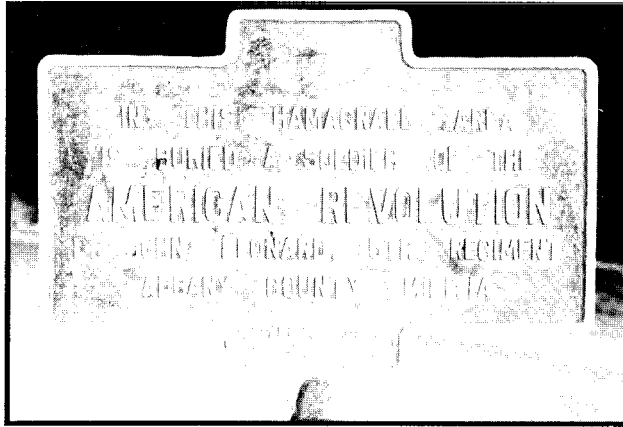 IN THIS HAMAGRAEL AREA
IS BURIED A SOLDIER OF THE
AMERICAN REVOLUTION
JOHN LEONARD, REGIMENT
ALBANY COUNTY MILITIA